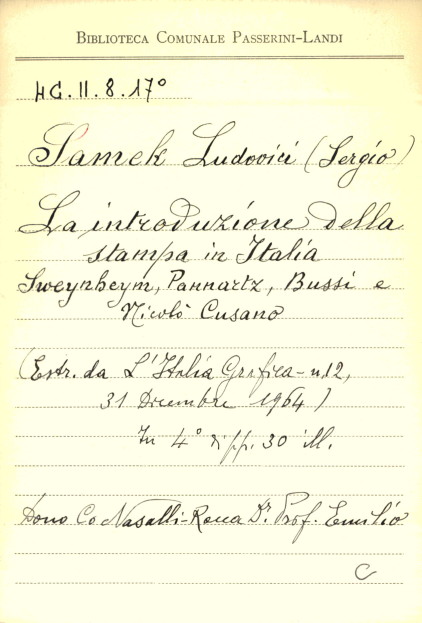 BIBLIOTECA COMUNALE PASSERINI-LANDI
HG.II.8.17°
Samek Ludovici (Sergio)
La introduzione della
stampa in Italia
Sweynheym, Pannartz, Bussi e
Nicolò Cusano
(Estr. da L'Italia Grafica - n.12,
31 Dicembre 1964)
In 4° di pp. 30 ill.
Dono Co Nasalli-Rocca Dr. Prof. Emilio
C